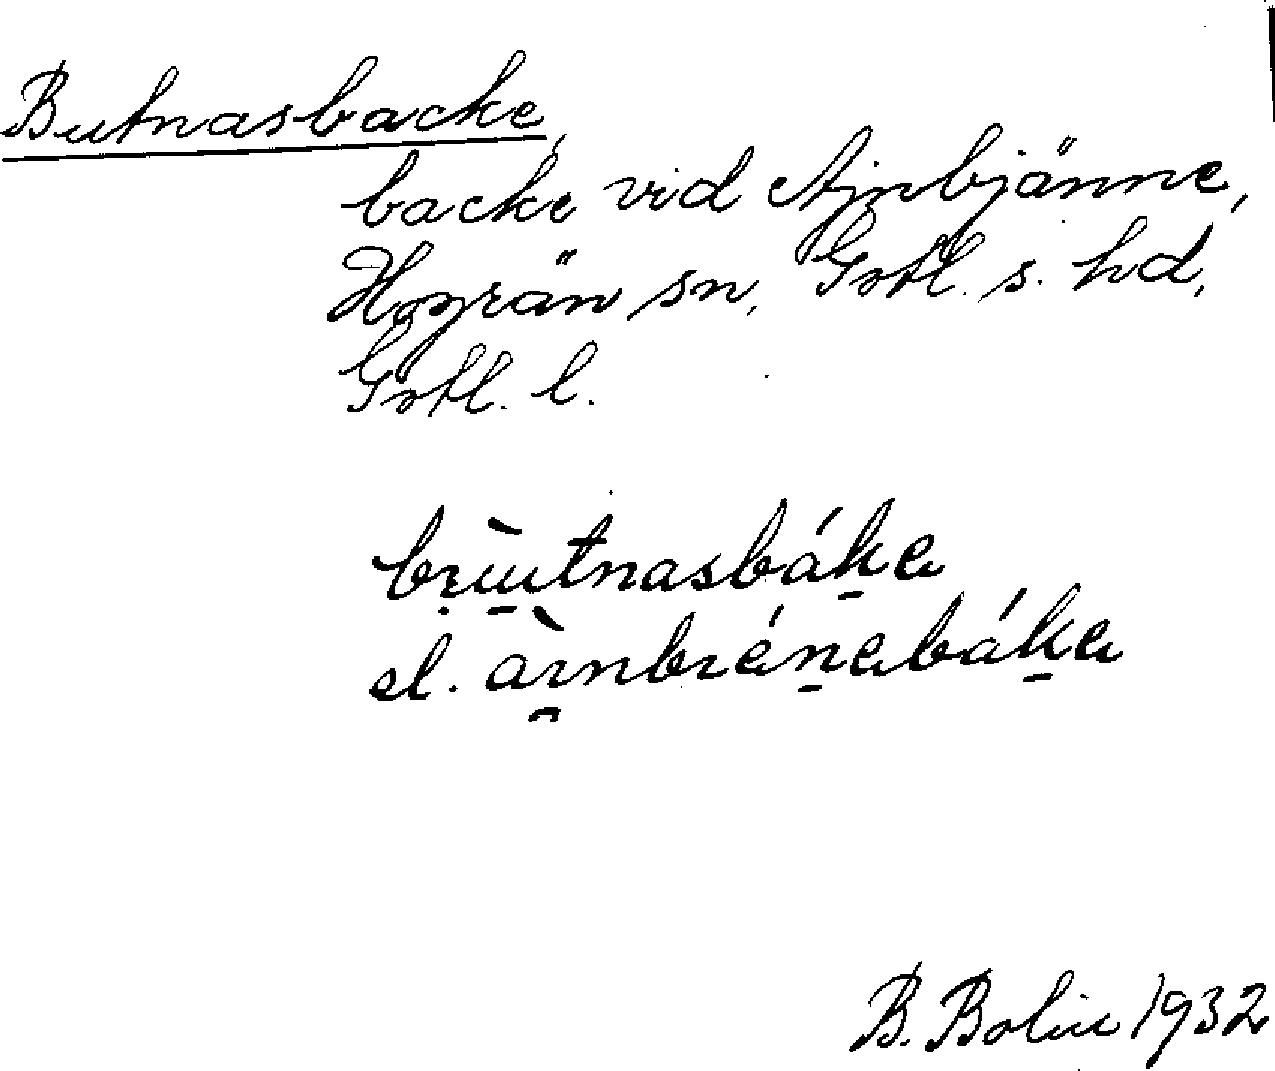 Butnasbacke,
backe vid Ajnbjänne,
Hogrän sn, Gotl. s. hd,
Gotl. l.
el.
B. Bolin 1932